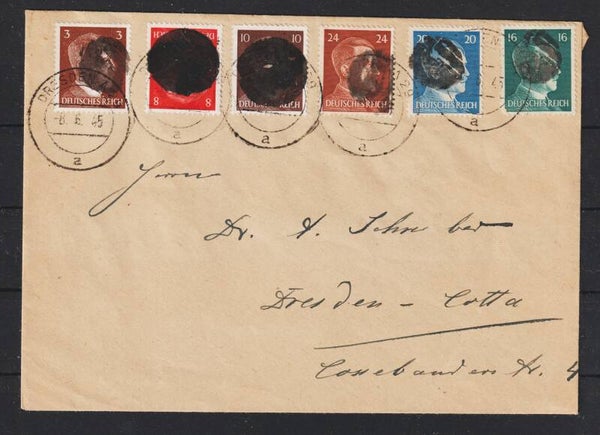 3 3
DEUTSCHES REICH
8 8
DEUTSCHES REICH
10 10
DEUTSCHES REICH
24 24
DEUTSCHES REICH
20 20
DEUTSCHES REICH
16 16
DEUTSCHES REICH
DRESDEN A
-8.6.45
a
a
a
a
a
Herrn
Dr. A. Schreiber
Dresden - Cotta
Cossebauders tr. 4